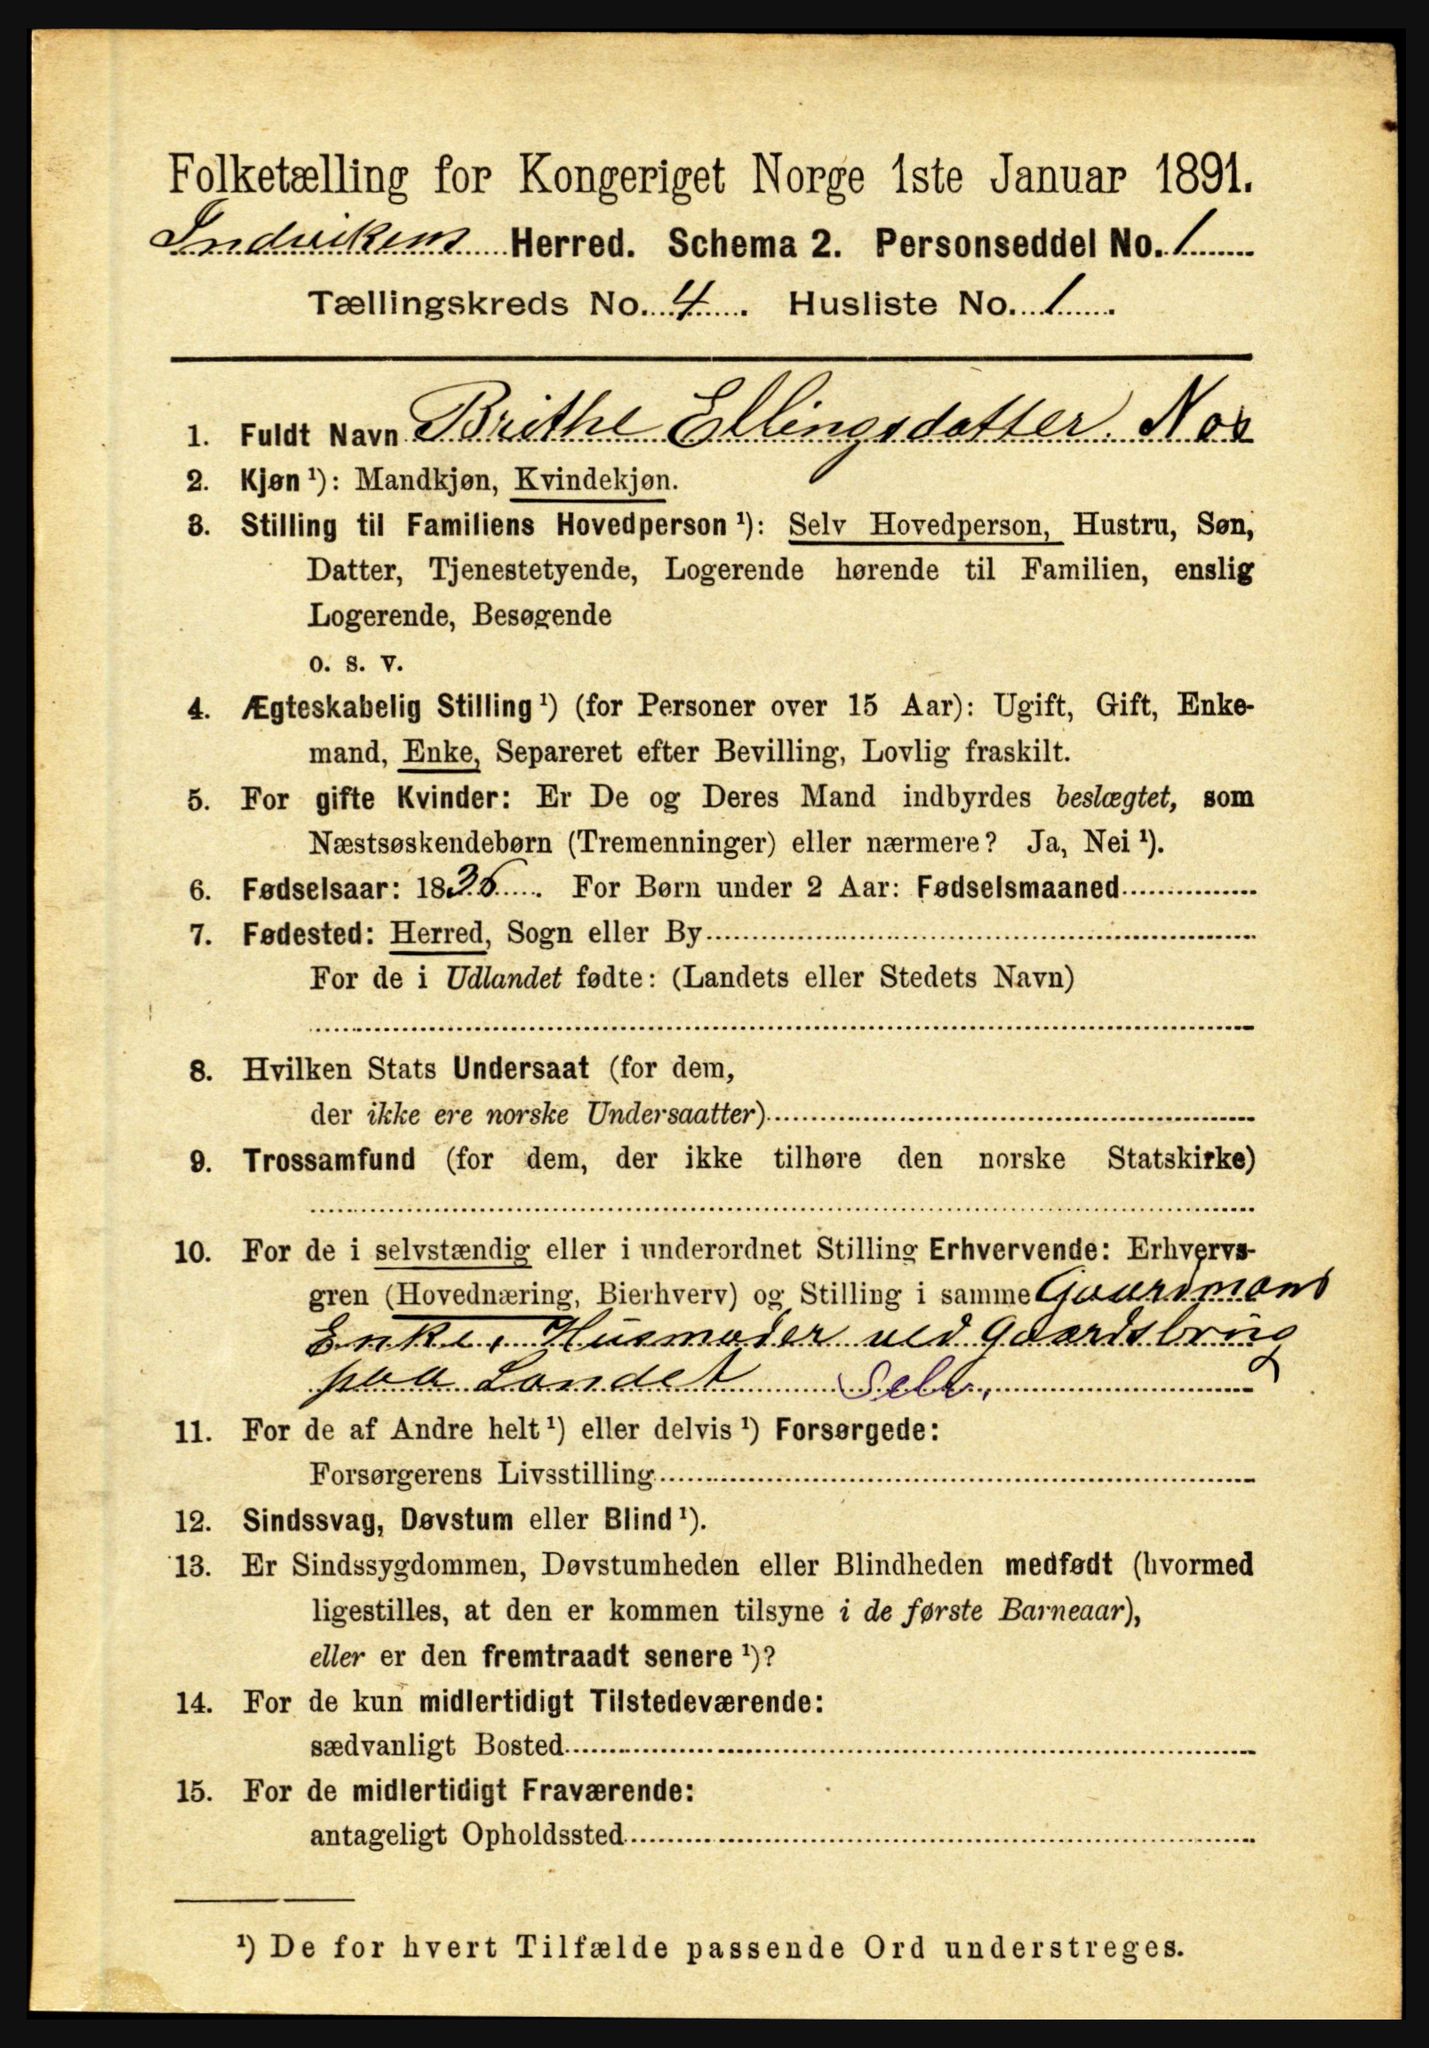 Folketælling for Kongeriget Norge 1ste Januar 1891.
Indvikens Herred. Schema 2. Personseddel No. 1
Tællingskreds No. 4. Husliste No. 1.
1. Fuldt Navn Brithe Ellingsdatter Nos
2. Kjøn ¹): Mandkjøn, Kvindekjøn.
3. Stilling til Familiens Hovedperson ¹): Selv Hovedperson, Hustru, Søn,
Datter, Tjenestetyende, Logerende hørende til Familien, enslig
Logerende, Besøgende
o. s. v.
4. Ægteskabelig Stilling ¹) (for Personer over 15 Aar): Ugift, Gift, Enke-
mand, Enke, Separeret efter Bevilling, Lovlig fraskilt.
5. For gifte Kvinder: Er De og Deres Mand indbyrdes beslægtet, som
Næstsøskendebørn (Tremenninger) eller nærmere? Ja, Nei ¹).
6. Fødselsaar: 1836. For Børn under 2 Aar: Fødselsmaaned
7. Fødested: Herred, Sogn eller By
For de i Udlandet fødte: (Landets eller Stedets Navn)
8. Hvilken Stats Undersaat (for dem,
der ikke ere norske Undersaatter)
9. Trossamfund (for dem, der ikke tilhøre den norske Statskirke)
10. For de i selvstændig eller i underordnet Stilling Erhvervende: Erhvervs-
gren (Hovednæring, Bierhverv) og Stilling i samme Gaardmans
Enke, Husmoder ved Gaardsbrug
paa Landet Selv.
11. For de af Andre helt ¹) eller delvis ¹) Forsørgede:
Forsørgerens Livsstilling
12. Sindssvag, Døvstum eller Blind ¹).
13. Er Sindssygdommen, Døvstumheden eller Blindheden medfødt (hvormed
ligestilles, at den er kommen tilsyne i de første Barneaar),
eller er den fremtraadt senere ¹)?
14. For de kun midlertidigt Tilstedeværende:
sædvanligt Bosted
15. For de midlertidigt Fraværende:
antageligt Opholdssted
¹) De for hvert Tilfælde passende Ord understreges.